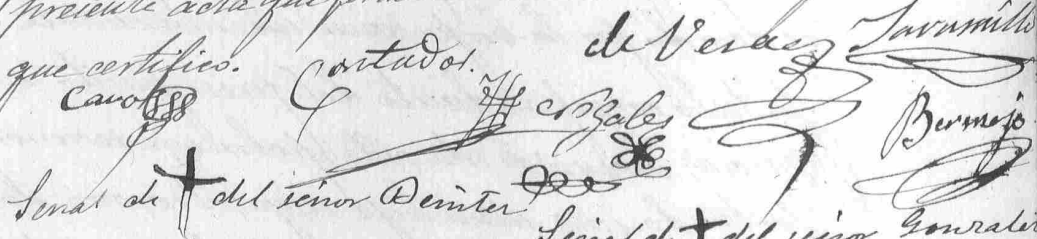 presente acta que
que certifico.
Cavo
Contador.
de Veraez
Jaramillo
Nogales
Bermejo
Señal de † del señor Benitez
Señal de † del señor Gonzalez